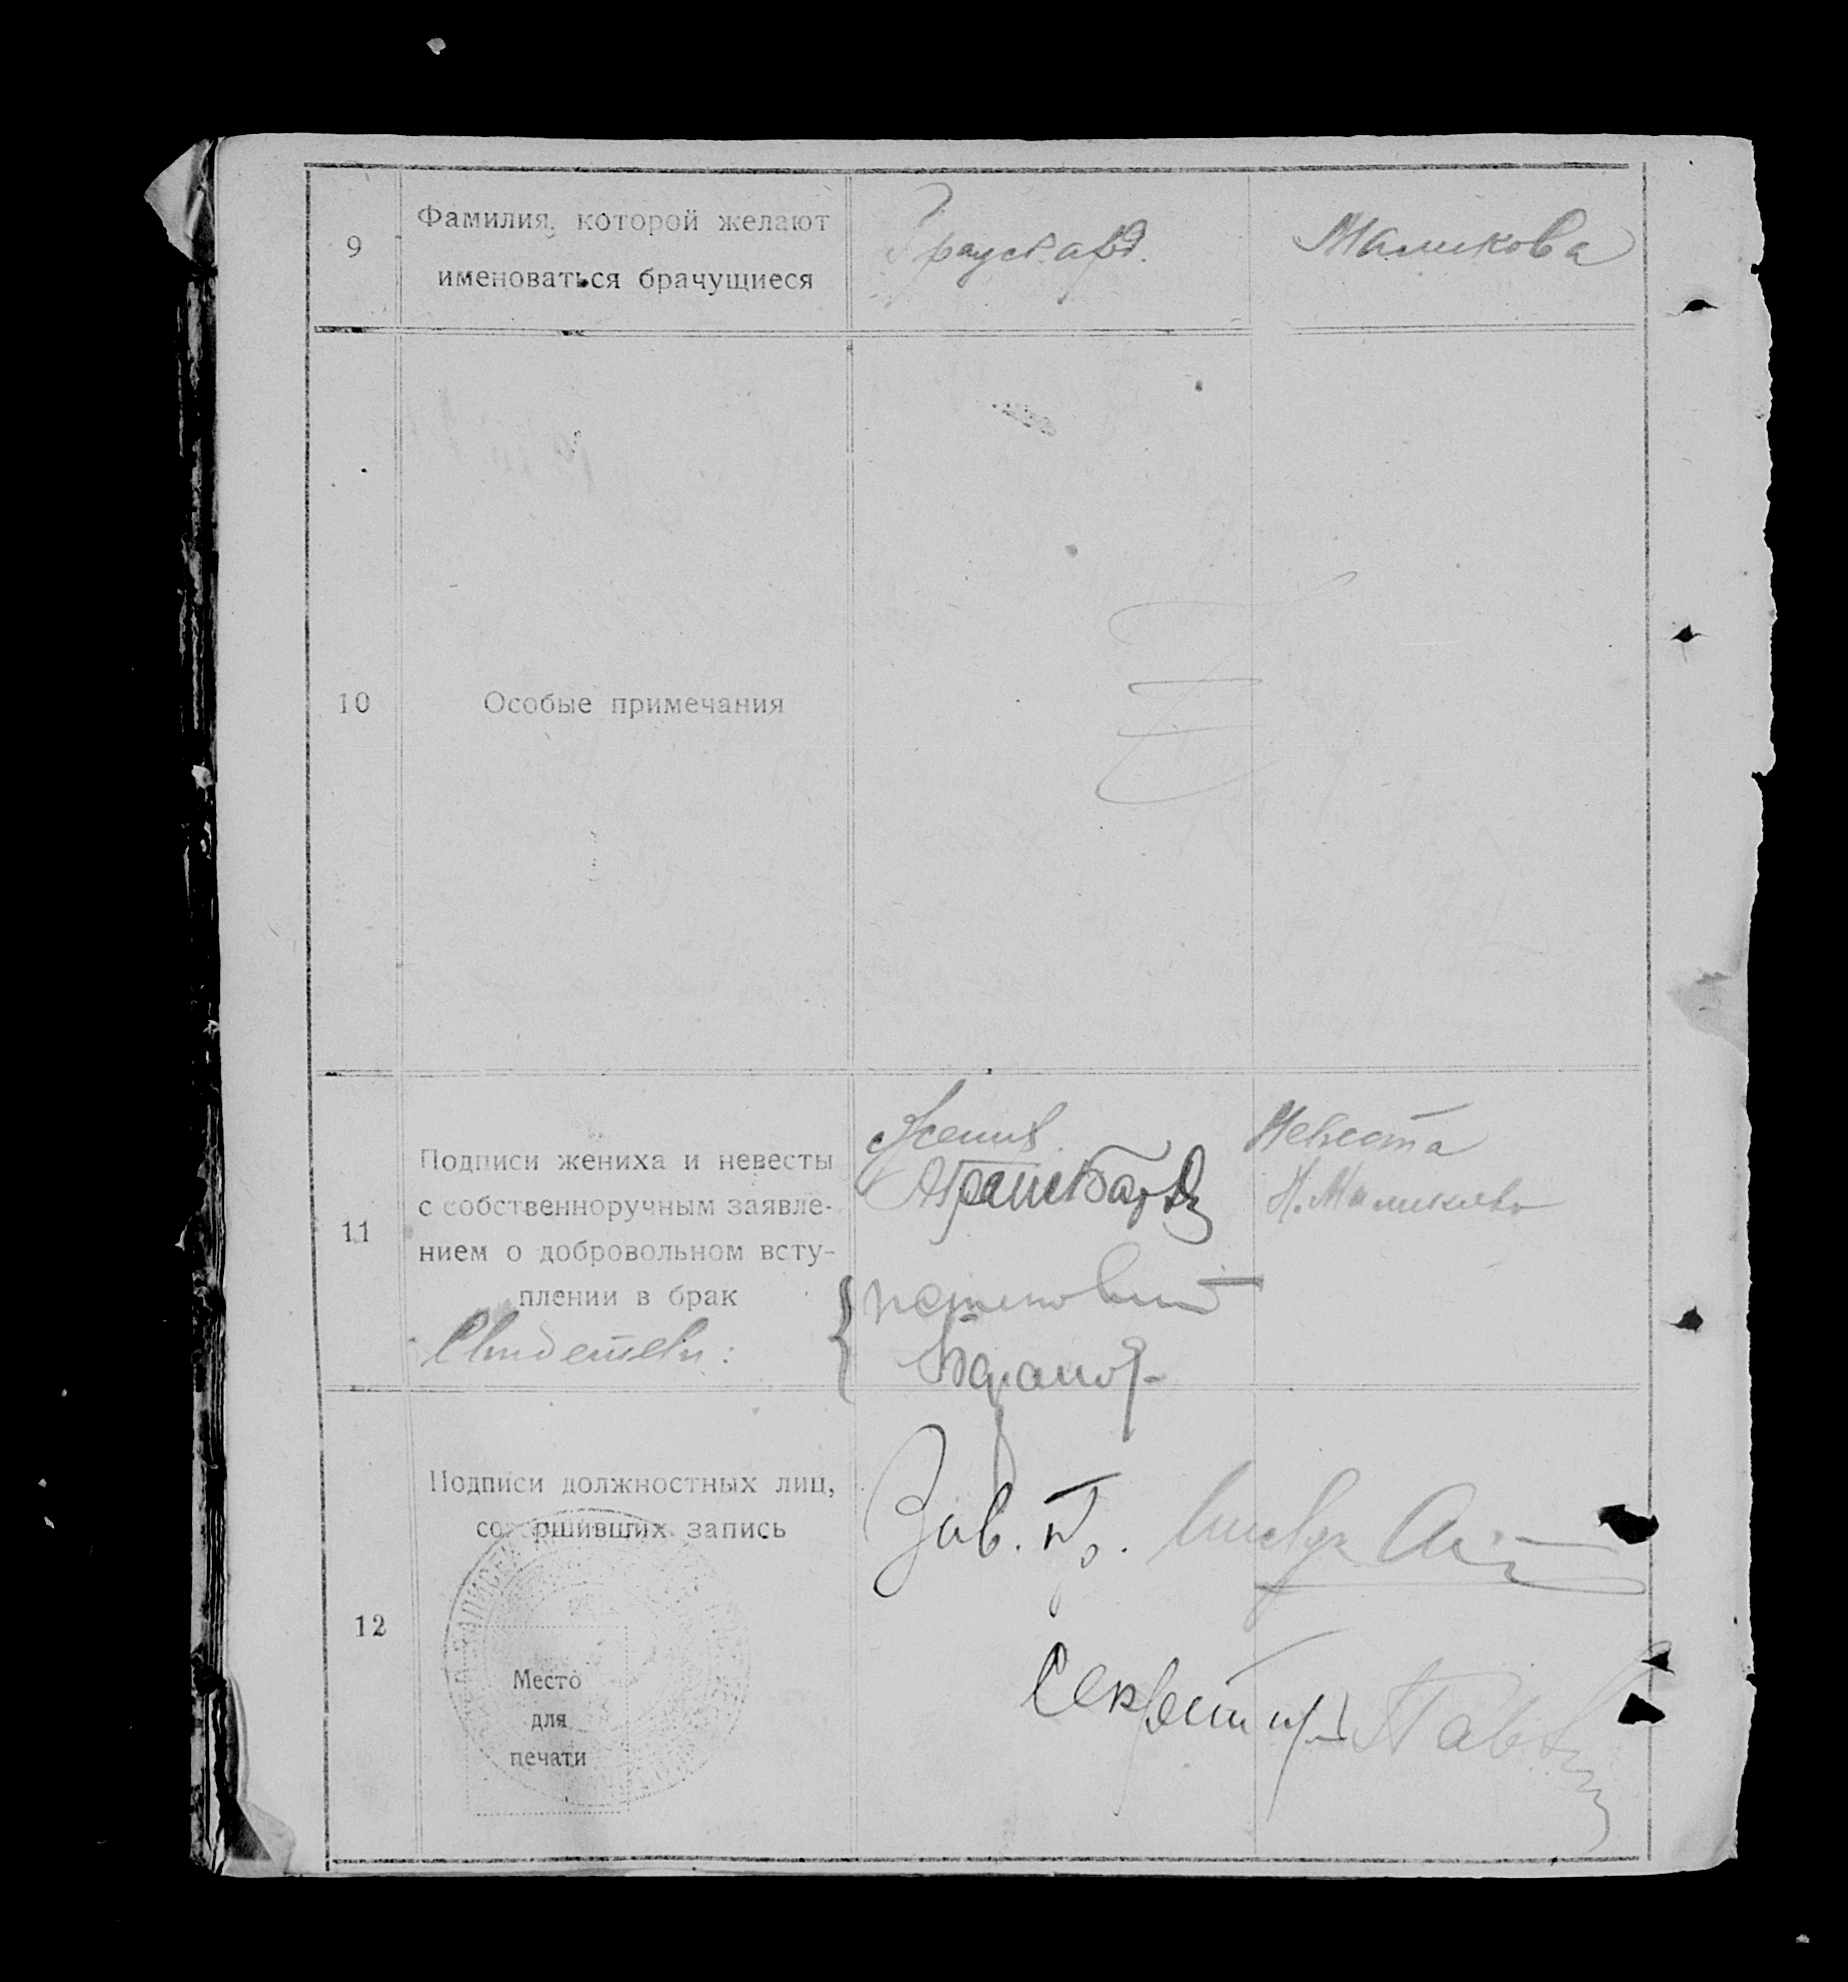 9
Фамилия, которой желают
именоваться брачущиеся
Маликова
10
Особые примечания
11
Подписи жениха и невесты
с собственноручным заявле-
нием о добровольном всту-
плении в брак
Свидетели:
Жених
Невеста
Н. Маликова
12
Подписи должностных лиц,
совершивших запись
Место
для
печати
Зав.
Секретарь